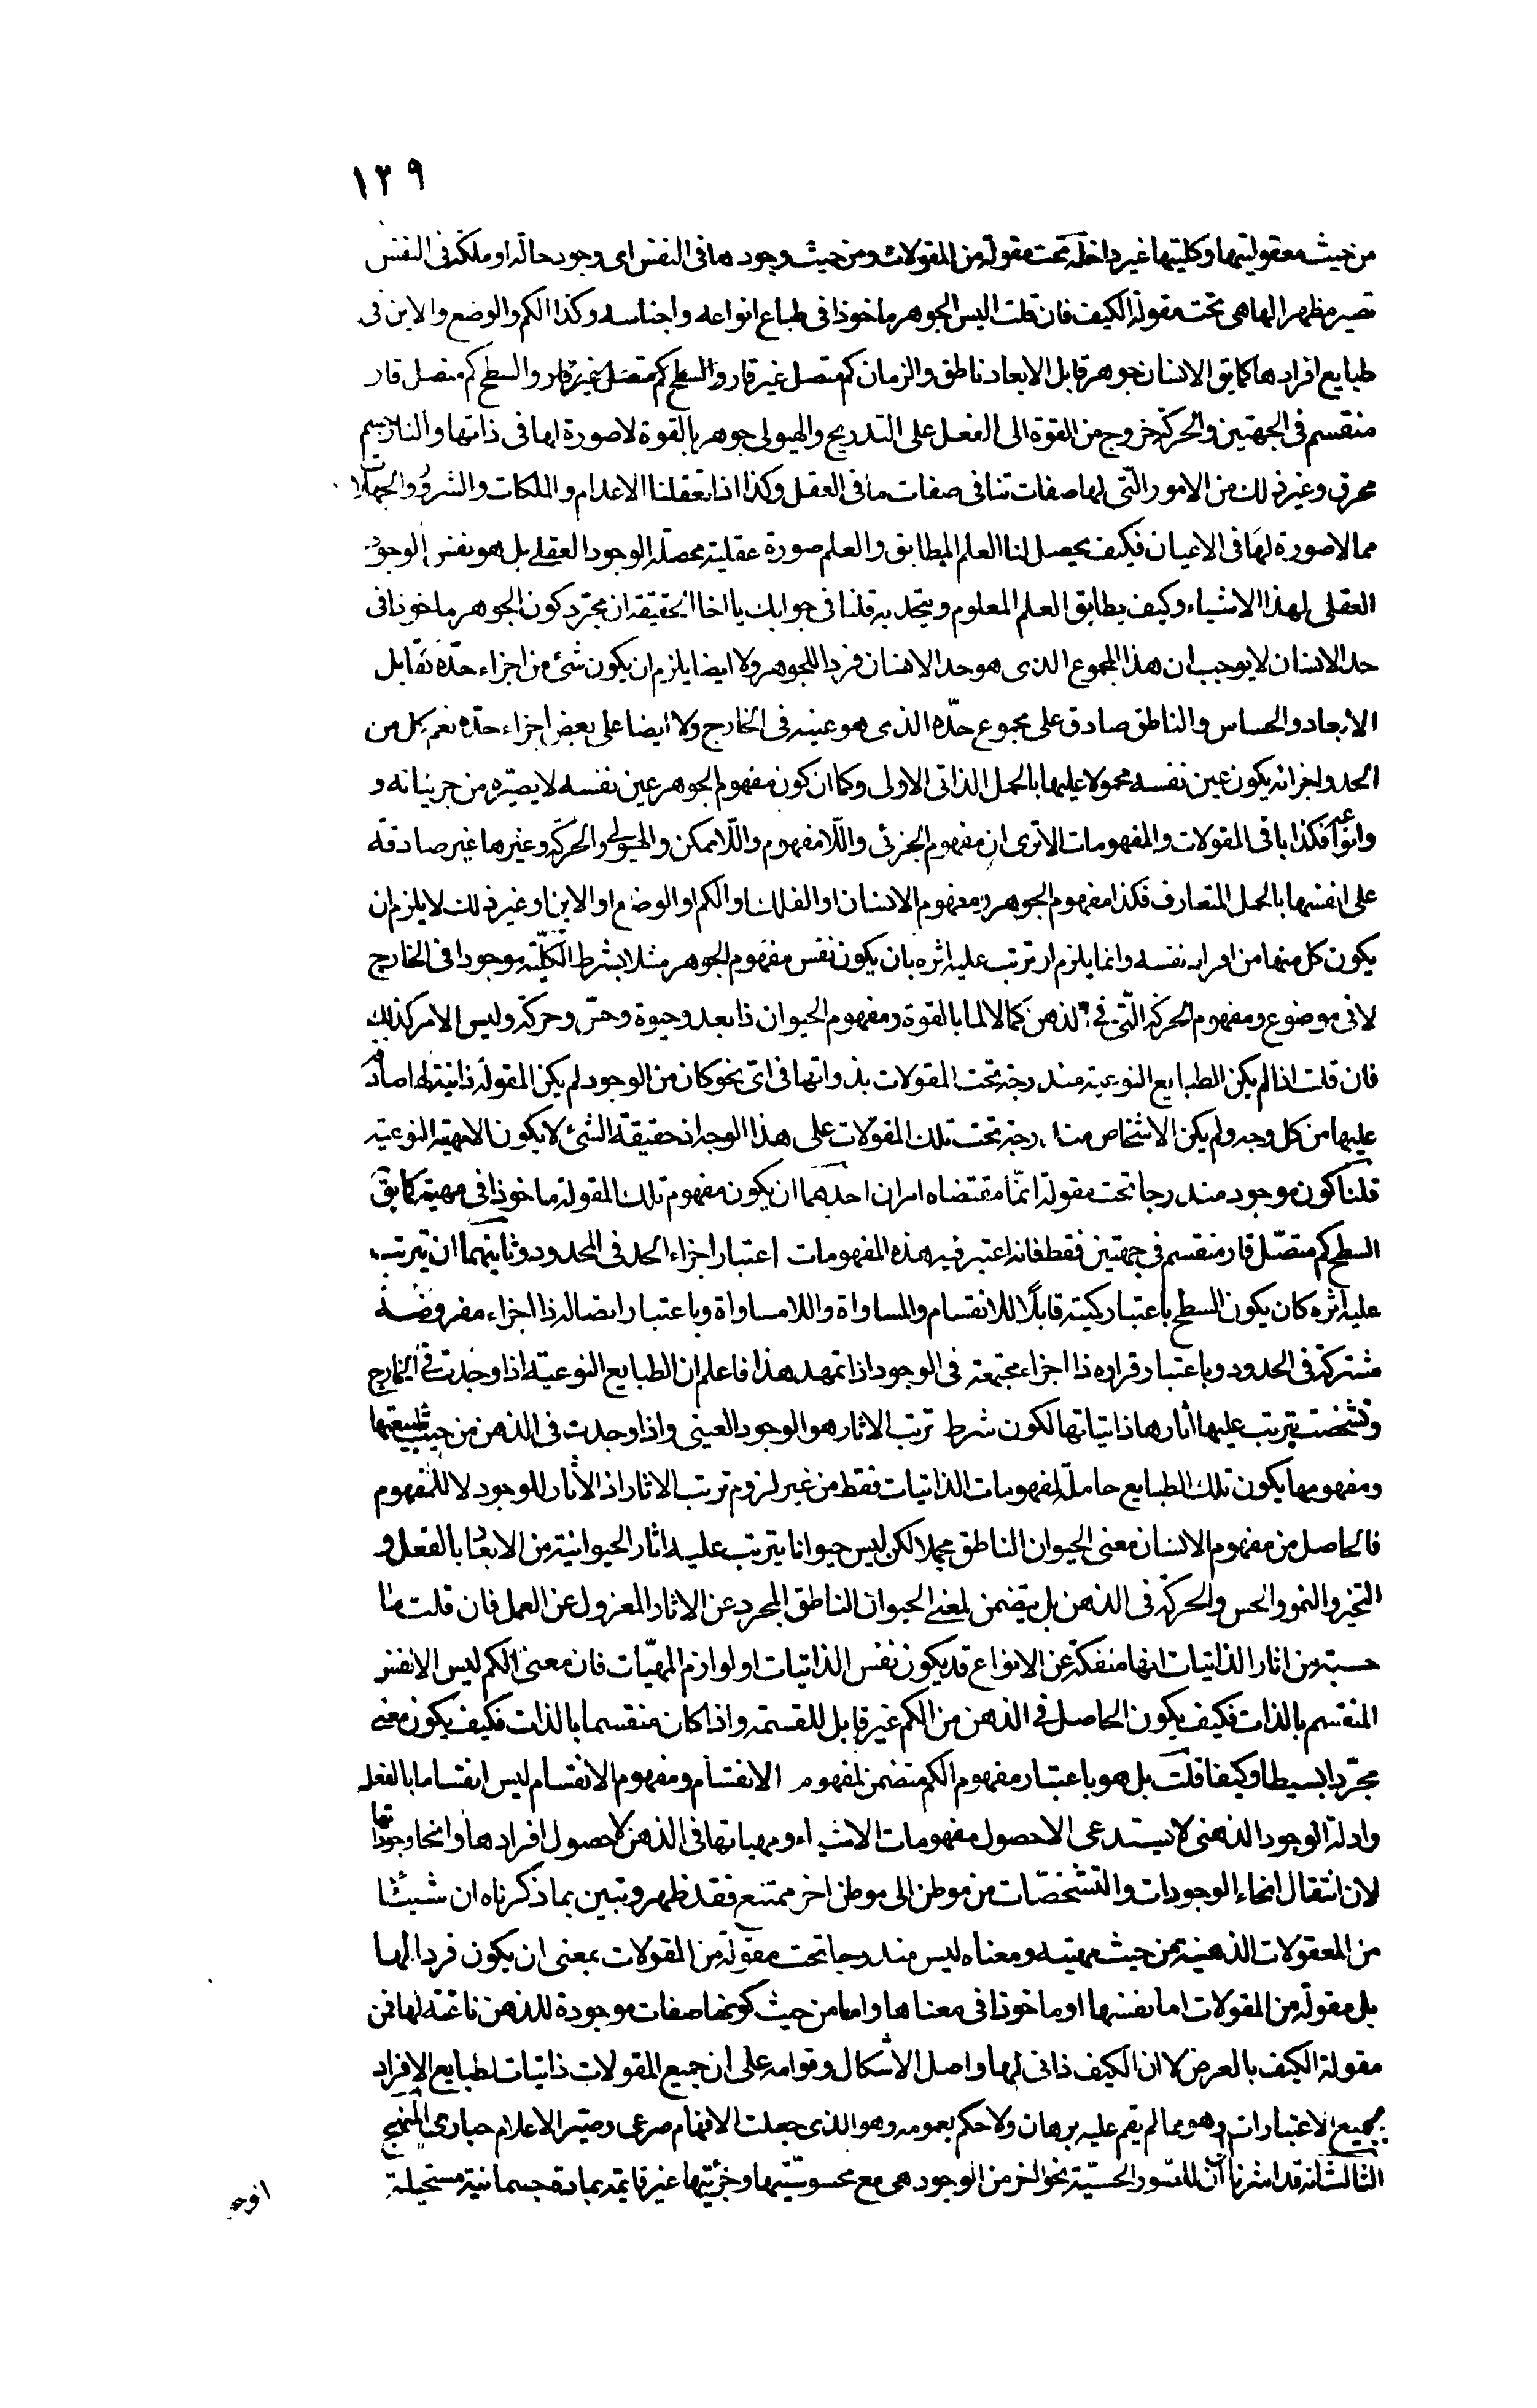 ١٢٩
من حيث معقوليتها وكليتها غير داخلة تحت مقولة من المقولات ومن حيث وجودها فى النفس اى وجود حالة او ملكة فى النفس
تصير مظهرا لها هى تحت مقولة الكيف فان قلت اليس الجوهر ماخوذا فى طباع انواعه واجناسه وكذا الكم والوضع والاين فى
طبايع افرادها كما يق الانسان جوهر قابل الابعاد ناطق والزمان كم متصل غير قار والسطح كم متصل غير قار والسطح كم متصل قار
منقسم فى الجهتين والحركة خروج من القوة الى الفعل على التدريج والهيولى جوهر بالقوة لا صورة لها فى ذاتها والنار جسم
محرق وغير ذلك من الامور التى لها صفات تنافى صفات ما فى العقل وكذا اذا تعقلنا الاعدام والملكات والشرور والجهالات
مما لا صورة لها فى الاعيان فكيف يحصل لنا العلم المطابق والعلم صورة عقلية محصلة الوجود العقلى بل هو نفس الوجود
العقلى لهذا الاشياء وكيف يطابق العلم المعلوم ويتحد به قلنا فى جوابك يا اخا الحقيقة ان مجرد كون الجوهر ماخوذا فى
حد الانسان لا يوجب ان هذا المجموع الذى هو حد الانسان فردا للجوهر ولا ايضا يلزم ان يكون شئ من اجزاء حدّه تقابل
الابعاد والحساس والناطق صادق على مجموع حدّه الذى هو عينه فى الخارج ولا ايضا على بعض اجزاء حدّه نعم كل من
الحد واجزائه يكون عين نفسه محمولا عليها بالحمل الذاتى الاولى وكما ان كون مفهوم الجوهر عين نفسه لا يصيّره من جزئياته و
وانواعه فكذا باقى المقولات والمفهومات الا ترى ان مفهوم الجزئى واللّا مفهوم واللّا ممكن والهيولى والحركة وغيرها غير صادقة
على انفسها بالحمل المتعارف فكذا مفهوم الجوهر ومفهوم الانسان او الفلك او الكم او الوضع او الاين او غير ذلك لا يلزم ان
يكون كل منها من افراد نفسه وانما يلزم لو ترتب عليه اثره بان يكون نفس مفهوم الجوهر مثلا بشرط الكلّية موجودا فى الخارج
لا فى موضوع ومفهوم الحركة التى فى الذهن كمالا لما بالقوة ومفهوم الحيوان ذا بعد وحيوة وحسّ وحركة وليس الامر كذلك
فان قلت اذا لم يكن الطبايع النوعية مندرجة تحت المقولات بذواتها فى اىّ نحو كان من الوجود لم يكن المقولة ذاتية لها صادقة
عليها من كل وجه ولم يكن الاشخاص مندرجة تحت تلك المقولات على هذا الوجه اذ حقيقة الشئ لا يكون الا مهيته النوعية
قلنا كون موجود مندرجا تحت مقولة انّما مقتضاه امران احدهما ان يكون مفهوم تلك المقولة ماخوذا فى مهيته كما يق
السطح كم متصّل قار منقسم فى جهتين فقط فانه اعتبر فيه هذه المفهومات اعتبار اجزاء الحد فى المحدود وثانيهما ان يترتب
عليه اثره كان يكون السطح باعتبار كميته قابلًا للانقسام والمساواة واللا مساواة وباعتبار اتصاله ذا اجزاء مفروضة
مشتركة فى الحدود وباعتبار قراره ذا اجزاء مجتمعة فى الوجود اذا تمهد هذا فاعلم ان الطبايع النوعية اذا وجدت فى الخارج
وتشخصت يترتب عليها اثارها ذاتياتها لكون شرط ترتب الاثار هو الوجود العينى واذا وجدت فى الذهن من حيث طبيعتها
ومفهومها يكون تلك الطبايع حاملة لمفهومات الذاتيات فقط من غير لزوم ترتب الاثار اذ الاثار للوجود لا للمفهوم
فالحاصل من مفهوم الانسان معنى الحيوان الناطق مجملا لكن ليس حيوانا يترتب عليه اثار الحيوانية من الابعاد بالفعل و
التحيز والنمو والحس والحركة فى الذهن بل يتضمن لمعنى الحيوان الناطق المجرد عن الاثار المعزول عن العمل فان قلت ما
حسبته من اثار الذاتيات انها منفكة عن الانواع قد يكون نفس الذاتيات او لوازم المهيّات فان معنى الكم ليس الا نفس
المنقسم بالذات فكيف يكون الحاصل فى الذهن من الكم غير قابل للقسمة واذا كان منقسما بالذات فكيف يكون معنى
مجرّدا بسيطا وكيفا قلت بل هو باعتبار مفهوم الكم متضمن لمفهوم الانقسام ومفهوم الانقسام ليس انقساما بالفعل
وادلة الوجود الذهنى لا يستدعى الا حصول مفهومات الاشياء ومهياتها فى الذهن لا حصول افرادها وانحاء وجوداتها
لان انتقال انحاء الوجودات والتشخصّات من موطن الى موطن اخر ممتنع فقد ظهر وتبين بما ذكرناه ان شيئا
من المعقولات الذهنية من حيث مهيته ومعناه ليس مندرجا تحت مقولة من المقولات بمعنى ان يكون فردا لها
بل مقولة من المقولات اما نفسها او ماخوذا فى معناها واما من حيث كونها صفات موجودة للذهن ناعتة لها فمن
مقولة الكيف بالعرض لا ان الكيف ذاتى لها واصل الاشكال وقوامه على ان جميع المقولات ذاتيات لطبايع الافراد
بجميع الاعتبارات وهو مما لم يقم عليه برهان ولا حكم بعمومه وهو الذى جعلت الافهام صرعى وصيّر الاعلام حيارى المنهج
الثالث انه قد اشرنا ان للصّور الحسيّة نحوا اخر من الوجود هى مع محسوسّيتها وجزئيّتها غير قايمة بمادة جسمانية مستحيلة